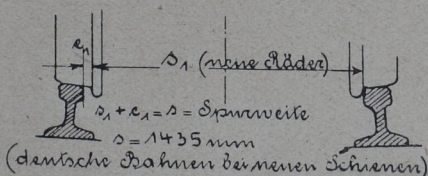 en s₁ (neue Räder)
s₁ + e₁ = s = Spurweite
s = 1435 mm
(deutsche Bahnen bei neuen Schienen)